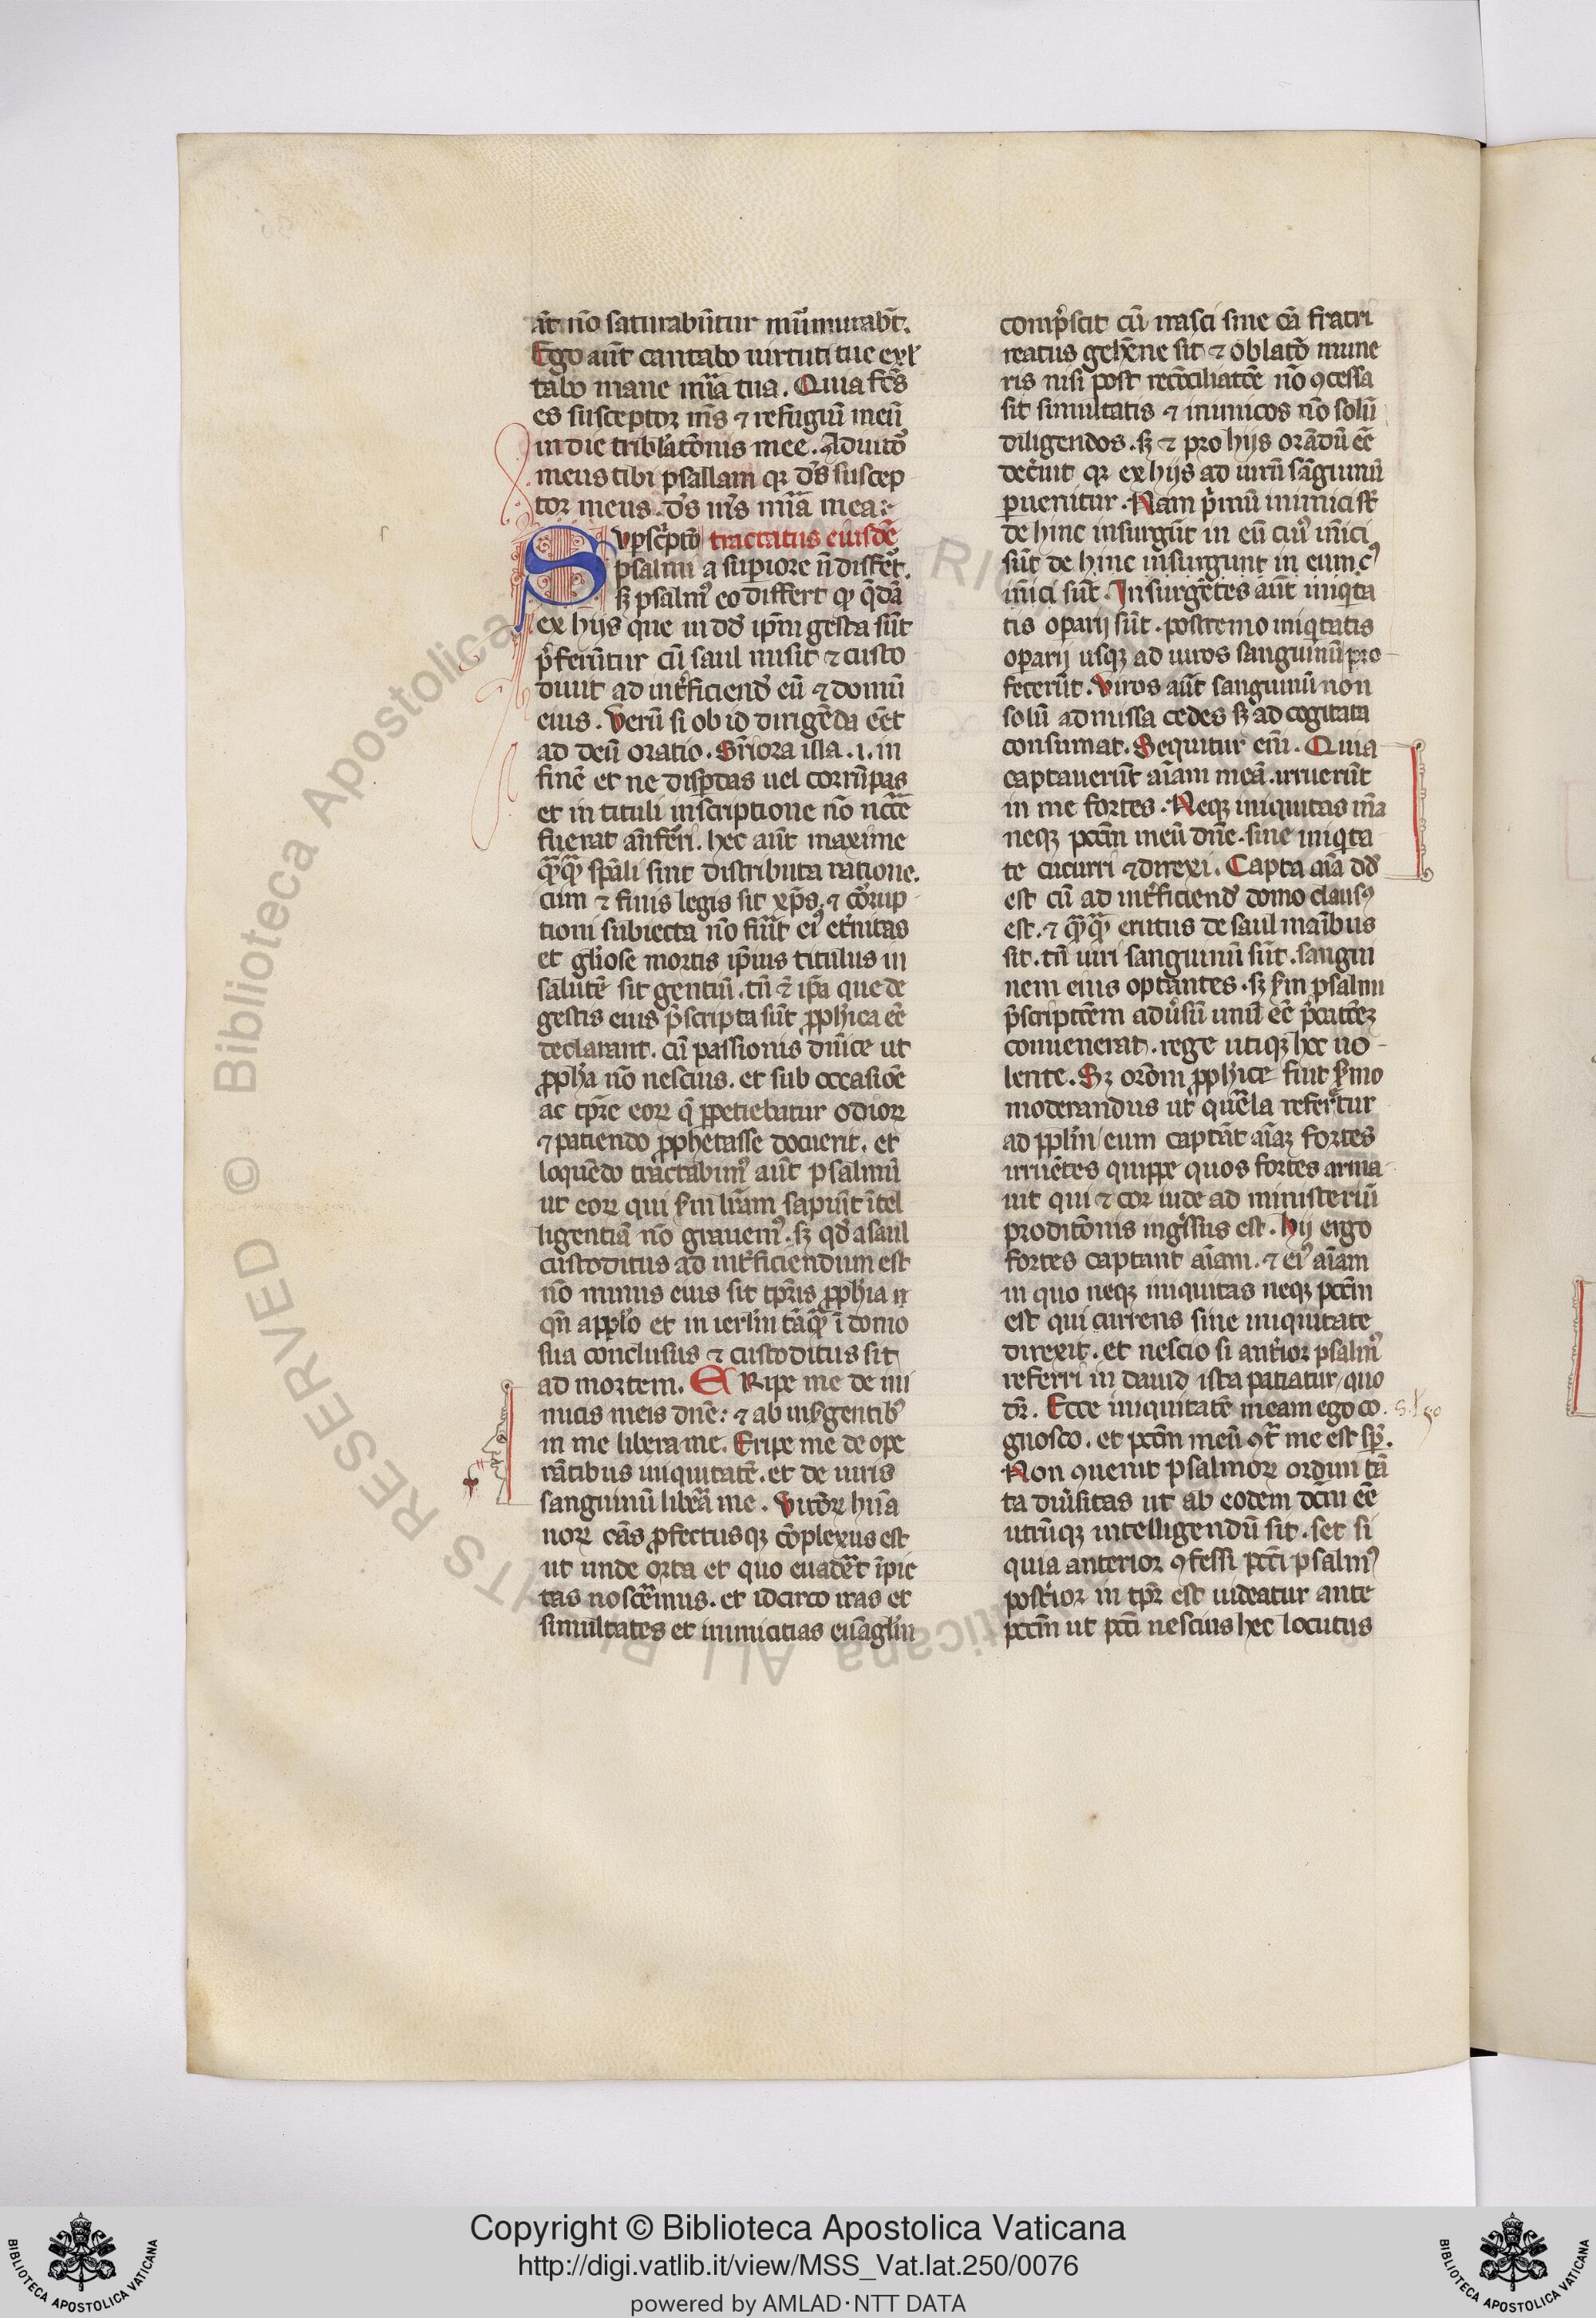 aūt nō saturabūtur murmurabūt.
Ego aūt cantabo uirtuti tue exl
tabo mane mīam tua. Quia fcūs
es susceptor ms̄ ⁊ refugiū meū
in die tribl'atōnis mee. Adiutor
meus tibi psallam qꝛ ds̄ suscep
tor meus. ds̄ ms̄ mīa mea.
Suꝑscp̄to tractatus eiusdē
psalmi a superiore n̄ differt.
sꝫ psalmꝰ eo differt ꝙ q̄dā
ex hijs que in dd̄ ip̄m gesta sūt
p̄ferūtur cū saul misit ⁊ custo
diuit ad int̄ficiend̄ eū ⁊ domū
eius. Verū si ob id dirigēda eēt
ad deū oratio. Sn̄iora illa .i. in
finē et ne disꝑdas uel corrūpas
et in tituli inscriptione nō ncc̄ē
fuerat anferri. hec aūt maxime
q̄q̄ sp̄ali sint distributa ratione.
cum ⁊ finis legis sit xp̄s. ⁊ corrup
tioni subiecta nō fuīt eiꝰ et̄nitas
et gl'iose mortis ip̄ius titulus in
salutē sit gentiū. tū ⁊ ip̄a que de
gestis eius p̄scripta sūt ꝓph'ica eē
declarant. cū passionis dn̄ice ut
ꝓph'a nō nescius. et sub occasiōe
ac tp̄re eoꝝ q̄ ꝑpetiebatur odioꝝ
⁊ patiendo ꝓphetasse docuerit. et
loquēdo tractabimꝰ aūt psalmū
ut eoꝝ qui scdm lr̄am sapiūt ītel
ligentiā nō grauemꝰ. sꝫ qd̄ a saul
custoditus ad int̄ficiendum est
nō minus eius sit tp̄ris ꝓph'ia n
qn̄ app'lo et in ierl'm tāq̄ ī domo
sua conclusus ⁊ custoditus sit
ad mortem. ERipe me de ini
micis meis dn̄e: ⁊ ab insgentibꝰ
in me libera me. Eripe me de ope
rātibus iniquitatē. et de uiris
sanguinū libera me. Vitioꝝ hūa
noꝝ cās ꝓfectusqꝫ cōplexus est
ut unde orta et quo euadēt īpie
tas noscemus. et idcirco iras et
simultates et inimicitias euāgl'm
comp̄scit cū irasci sine cā fratri
reatus gehēne sit ⁊ oblatō mune
ris nisi post recōciliatōē nō ꝯcessa
sit simultatis ⁊ inimicos nō solū
diligendos. sꝫ ⁊ pro hijs orādū eē
dec̄uit qꝛ ex hijs ad uirū sāguinū
ꝑuenitur. Nam p̄mū inimici sūt
de hinc insurgūt in eū cuiꝰ im̄ici
sūt de hinc insurgunt in eum cꝰ
im̄ici sūt. Insurgētes aūt iniq̄ta
tis oꝑarij sūt. postremo iniq̄tatis
oꝑarij usqꝫ ad uiros sanguinū pro
fecerūt. Viros aūt sanguinū non
solū admissa cedes sꝫ ad cogitata
consumat. Sequitur eni. Quia
captauerūt aīam meā. irruerūt
in me fortes. Neqꝫ iniquitas m̄a
neqꝫ pcc̄m meū dn̄e. sine iniq̄ta
te cucurri ⁊ direxi. Capta aīa dd̄
est cū ad int̄ficiend̄ domo clausꝰ
est. ⁊ q̄q̄ erutus de saul manibus
sit. tn̄ uiri sanguinū sūt. sangui
nem eius optantes. sꝫ scdm psalmi
p̄scriptōem aduersū unū eē p̄catōeꝫ
conuenerat. rege utiqꝫ hec no
lente. Sꝫ orōni ꝓph'ice fuit s̄mo
moderandus ut querela refertur
ad ppl'm eum captāt aīaꝫ fortes
irruētes quippe quos fortes arma
uit qui ⁊ cor iude ad ministeriū
proditōnis ingressus est. hij ergo
fortes captant aīam. ⁊ eiꝰ aīam
in quo neqꝫ iniquitas neqꝫ pcc̄m
est qui currens sine iniquitate
direxit. et nescio si ant̄ior psalmꝰ
referri in dauid ista patiatur, quo
dr̄. Ecce iniquitatē meam ego co
gnosco. et pcc̄m meū ꝯt̄ me est sp̄.
Non ꝯuenit psalmoꝝ ordini tā
ta diūsitas ut ab eodem dc̄m eē
utrūqꝫ intelligendū sit. set si
quia anterior ꝯfessi pcc̄i psalmꝰ
post̄ior in tp̄r est uideatur ante
pcc̄m ut pcc̄i nescius hec locutus
© Biblioteca Apostolica Vaticana ALL RIGHTS RESERVED
Copyright © Biblioteca Apostolica Vaticana
http://digi.vatlib.it/view/MSS_Vat.lat.250/0076
powered by AMLAD·NTT DATA
BIBLIOTECA APOSTOLICA VATICANA
BIBLIOTECA APOSTOLICA VATICANA